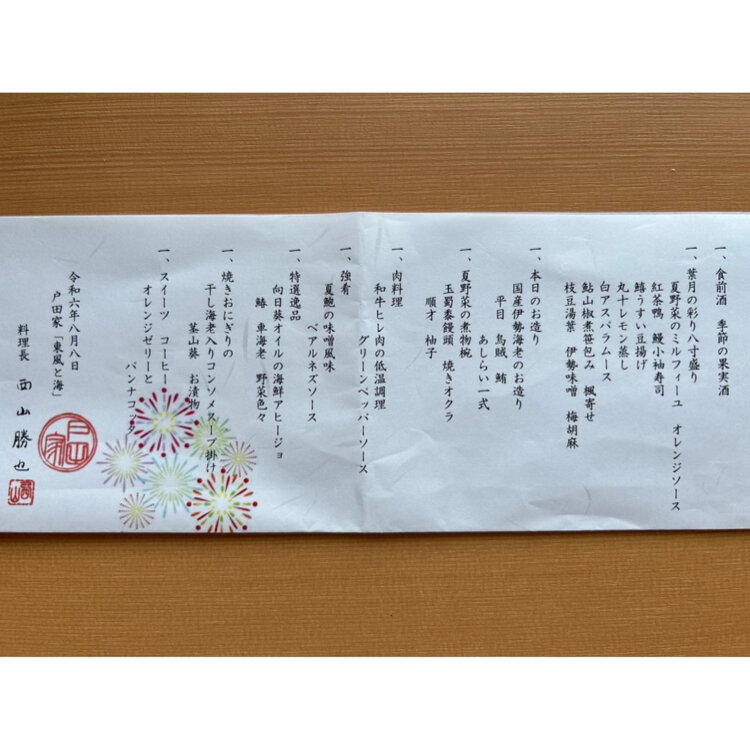 一、食前酒　季節の果実酒
一、葉月の彩り八寸盛り
夏野菜のミルフィーユ　オレンジソース
紅茶鴨　鰻小袖寿司
鱚うすい豆揚げ
丸十レモン蒸し
白アスパラムース
鮎山椒煮笹包み　楓寄せ
枝豆湯葉　伊勢味噌　梅胡麻
一、本日のお造り
国産伊勢海老のお造り
平目　烏賊　鮪
あしらい一式
一、夏野菜の煮物椀
玉蜀黍饅頭　焼きオクラ
順才　柚子
一、肉料理
和牛ヒレ肉の低温調理
グリーンペッパーソース
一、強肴
夏鮑の味噌風味
ベアルネズソース
一、特選逸品
向日葵オイルの海鮮アヒージョ
鱚　車海老　野菜色々
一、焼きおにぎりの
干し海老入りコンソメスープ掛け
茎山葵　お漬物
一、スイーツ　コーヒー
オレンジゼリーと
パンナコッタ
令和六年八月八日
戸田家「東風と海」
料理長　西山勝也